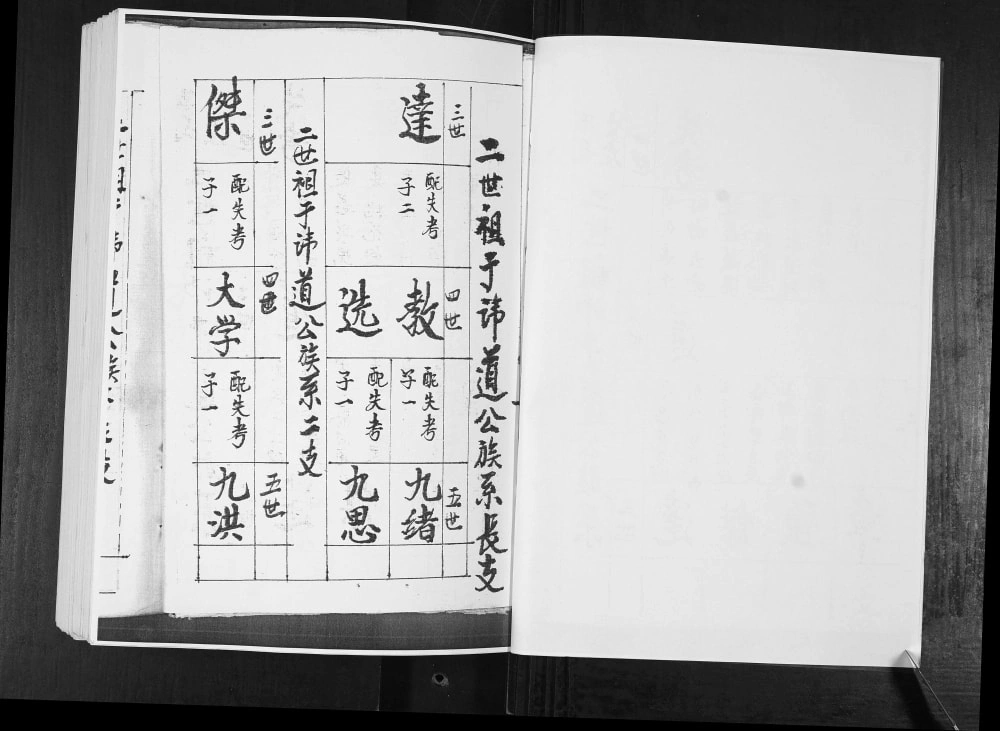 二世祖于諱道公族系長支
三世
達
配失考
子二
四世
敖
选
配失考
子一
配失考
子一
五世
九绪
九思
二世祖于諱道公族系二支
三世
傑
配失考
子一
四世
大学
配失考
子一
五世
九洪